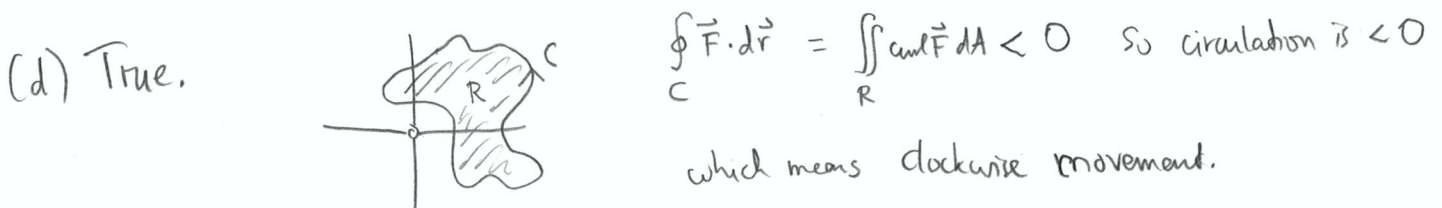 (d) True.
C
R
∮_C F⃗·dr⃗ = ∬_R curl F⃗ dA < 0 So circulation is < 0
which means clockwise movement.